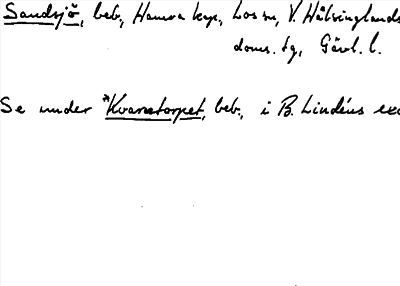 Sandsjö, beb., Hamra kap., Los sn, V. Hälsinglands
doms. tg, Gävl. l.
Se under *Kvarnstorpet, beb., i B. Lindéns exc